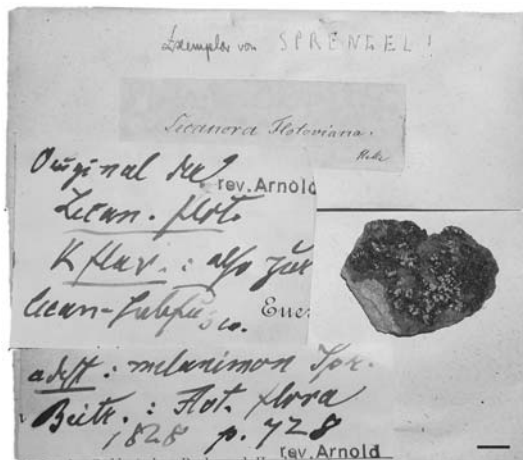 Exemplar von SPRENGEL!
Lecanora Flotoviana.
Hale
Original der?
rev. Arnold
Lecan. flot.
K flav.: also zur
lecan-subfusco.
Eues
adest: melanimon Spr.
Beitr.: Flot. flora
1828 p. 728
rev. Arnold